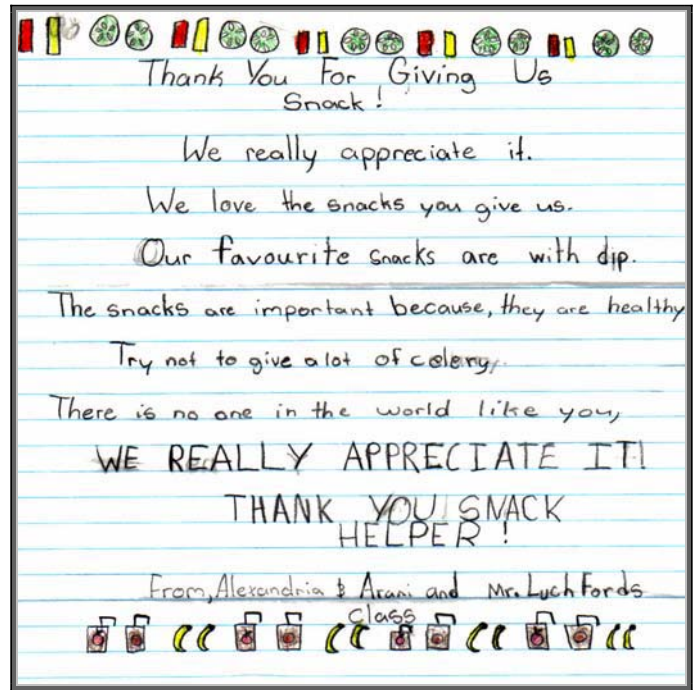 Thank You For Giving Us
Snack!
We really appreciate it.
We love the snacks you give us.
Our favourite snacks are with dip.
The snacks are important because, they are healthy
Try not to give alot of celery,
There is no one in the world like you,
WE REALLY APPRECIATE IT!
THANK YOU SNACK
HELPER!
From, Alexandria & Arani and Mr. Luch Fords
class